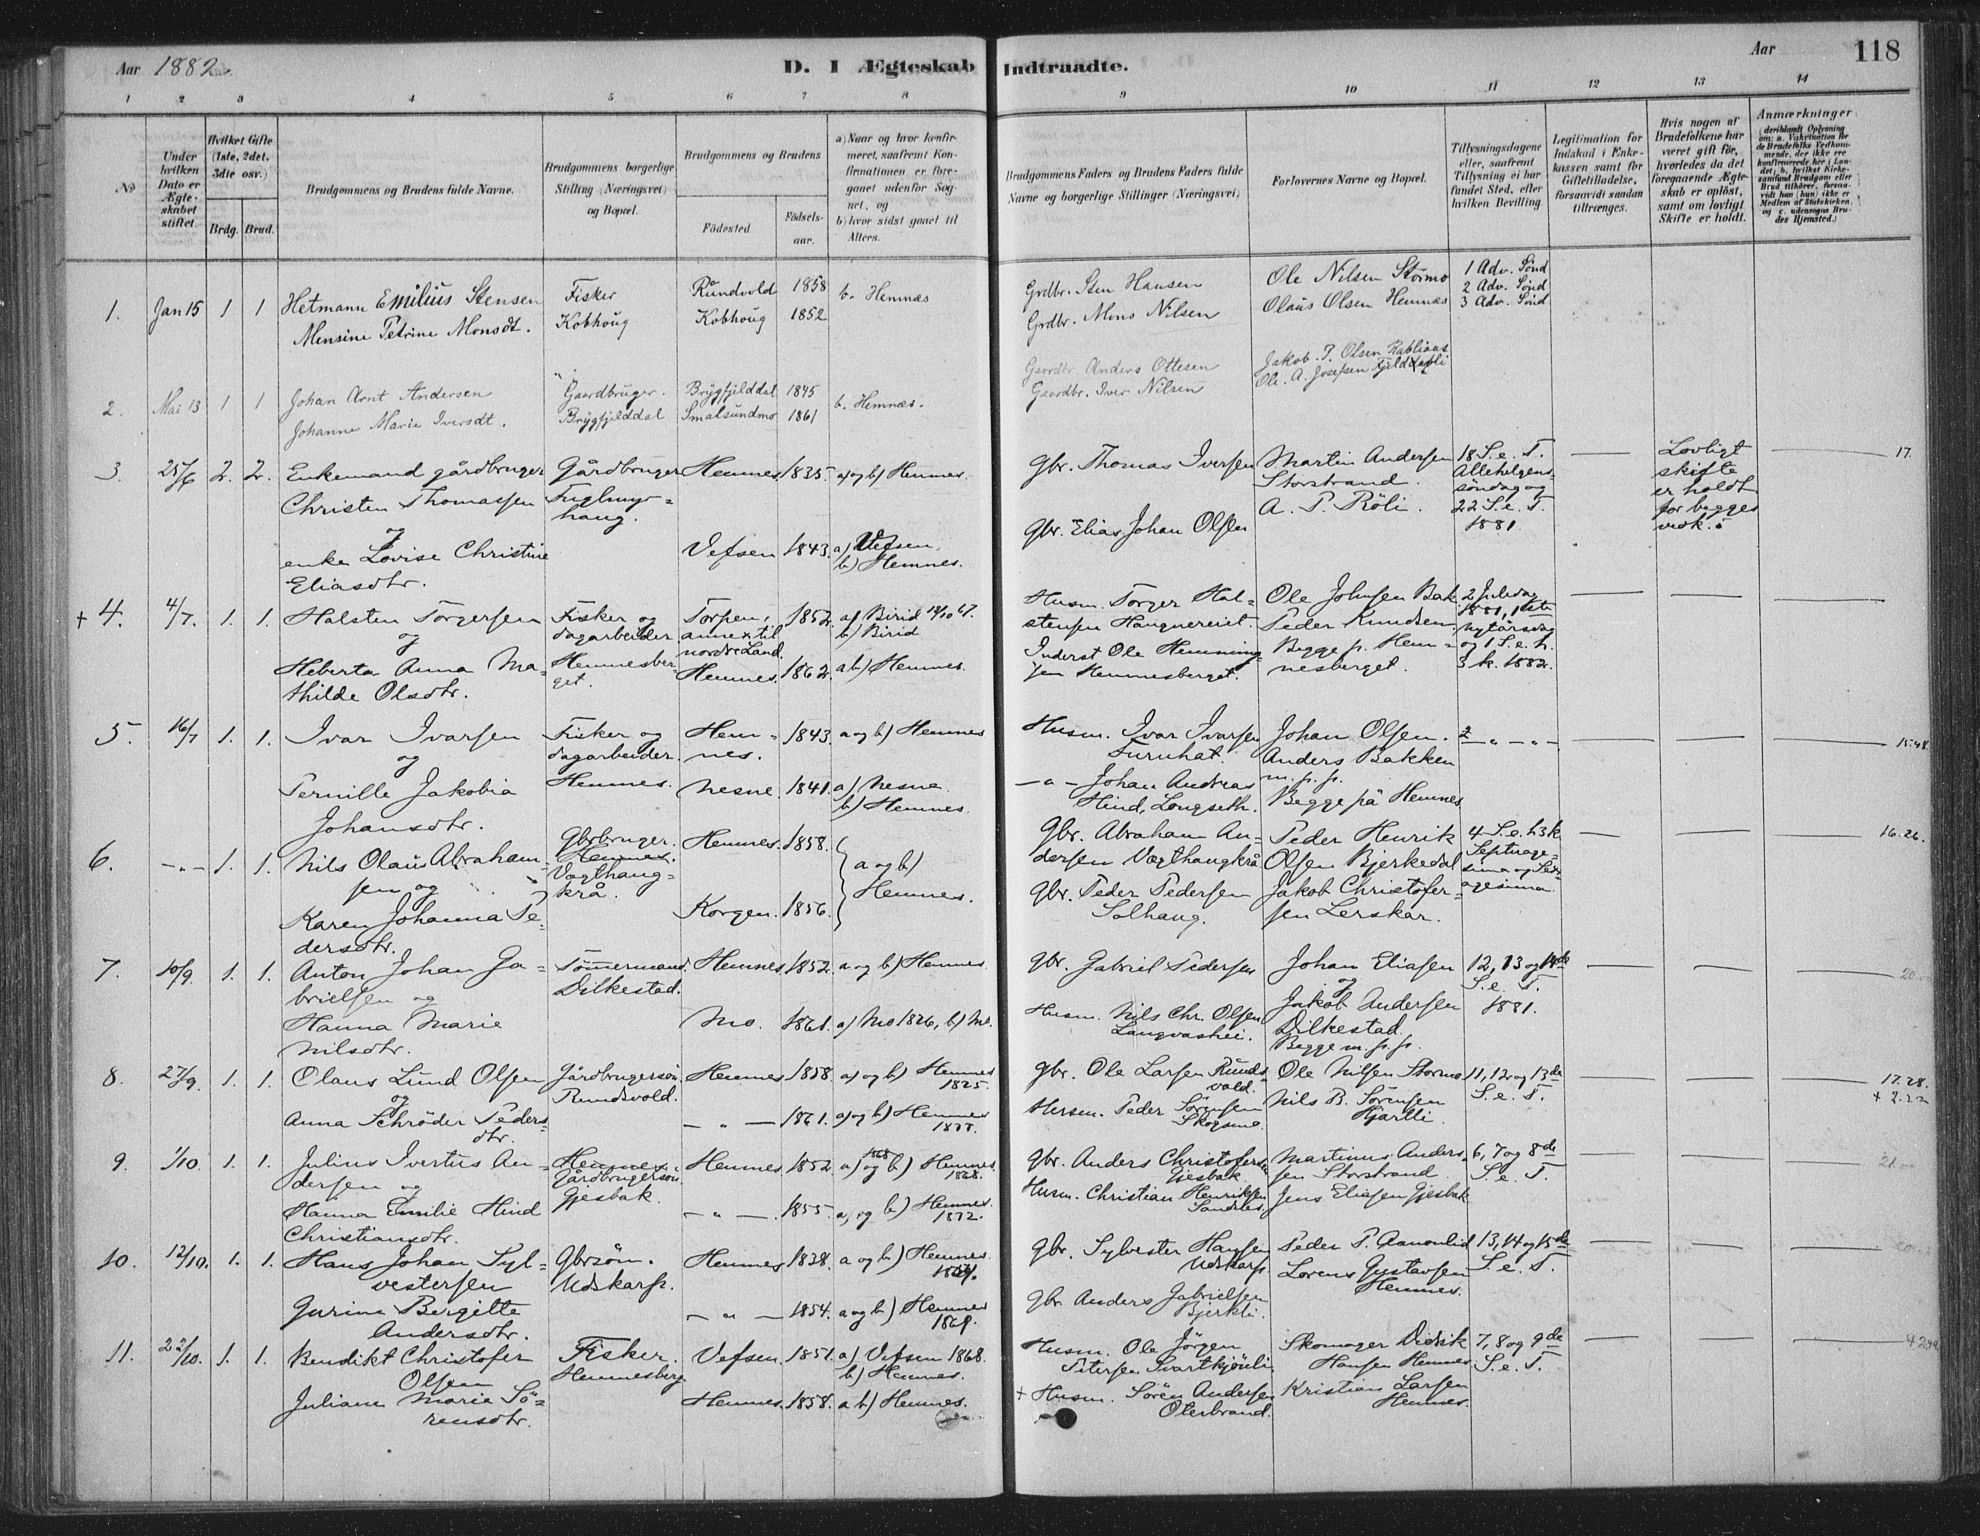 Aar 1882.
D. I Ægteskab Indtraadte.
Aar
118
1 2 3 4 5 6 7 8 9 10 11 12 13 14
No
Under hvilken Dato er Ægteskabet stiftet.
Hvilket Gifte (1ste, 2det, 3die osv.)
Brdg. Brud.
Brudgommens og Brudens fulde Navne.
Brudgommens borgerlige Stilling (Næringsvei) og Bopæl.
Brudgommens og Brudens
Födested.
Födselsaar.
a) Naar og hvor konfirmeret, saafremt Konfirmationen er foregaaet udenfor Sognet, og
b) hvor sidst gaaet til Alters.
Brudgommens Faders og Brudens Faders fulde Navne og borgerlige Stillinger (Næringsvei).
Forlovernes Navne og Bopæl.
Tillysningsdagene eller, saafremt Tillysning ei har fundet Sted, efter hvilken Bevilling.
Legitimation for Indskud i Enkekassen samt for Giftetilladelse, forsaavidt saadan tiltrænges.
Hvis nogen af Brudefolkene har været gift för, hvorledes da det foregaaende Ægteskab er oplöst, samt om lovligt Skifte er holdt.
Anmærkninger
1. Jan 15 1 1 Hetmann Emilius Stensen Fisker Rundvold 1858 b. Hemnæs Grdbr. Sten Hansen Ole Nilsen Stormo 1 Adv. Sönd
Mensine Petrine Monsdt. Kobhoug Kobhoug 1852 Grdbr. Mons Nilsen Olaus Olsen Hemnæs 2 Adv. Sönd
3 Adv. Sönd
2. Mai 13 1 1 Johan Arnt Andersen Gaardbruger. Brygfjelddal 1845 b. Hemnæs. Gaardbr. Anders Ottesen Jakob P. Olsen
Johanne Marie Iversdt. Brygfjelddal Smalsundmo 1861 Gaardbr. Iver Nilsen Ole A. Josefsen
3 25/6 2. 2. Enkemand gårdbruger Gårdbruger Hemnes. 1835. a) og b) Hemnes. Gbr. Thomas Iversen Martin Andersen 18 S. e. T. Lovligt 17.
Christen Thomassen Fuglmyrhaug. Storstrand. Allehelgens- skifte
og A. P. Röli. söndag og er holdt
enke Lovise Christine Vefsen 1843. a) Vefsen, Gbr. Elias Johan Olsen 22 S. e. T. for begges
Eliasdtr. b) Hemnes. 1881. vedk.
+ 4. 4/7. 1. 1. Halsten Torgersen Fisker og Torpen, 1852. a) Birid 67. Husm. Torger Hal- Ole Johnsen Bak 2 Juledag
og dagarbeider annex til b) Birid stensen Peder Knudsen. 1881, 1ste
Heberta Anna Ma- Hemnesber- nordre Land. Inderst Ole Henning- Begge p. Hem- Nytårsdag
thilde Olsdtr. get. Hemnes. 1862. a b) Hemnes. sen Hemnesberget. nesberget. og 1 S. e. h. 3 k. 1882.
5. 16/7 1. 1. Ivar Ivarsen Fisker og Hem- 1843. a og b) Hemnes Husm. Ivar Ivarsen Johan Olsen. 2 — " — " — 15.48.
og dagarbeider. nes. Furuhat. Anders Bakken
Pernille Jakobia Hemnes. Nesne. 1841. a) Nesne — " — Johan Andreas m. p. p.
Johansdtr. b) Hemnes. Hind, Longseth. Begge på Hemnes
6. — " — 1. 1. Nils Olaus Abraham- Gbrbruger. Hemnes. 1858. a og b) Gbr. Abraham An- Peder Henrik 4 S. e. h 3 k 16.26.
sen og Hemnes. Hemnes. dersen Vegthaugkrå Olsen Bjerkedal Septuage-
Karen Johanna Pe- Vegthaug- Korgen. 1856. Gbr. Peder Pedersen Jakob Christofer- sima og Sex-
dersdtr. krå. Solhaug. sen Lerskar. agesima.
7. 10/9. 1. 1. Anton Johan Ga- Tömmermand. Hemnes. 1852. a og b) Hemnes. Gbr. Gabriel Pedersen Johan Eliasen 12, 13 og 14de
brielsen og Dilkestad. og S. e. T.
Hanna Marie Mo. 1861. a) Mo 1826, b) Mo. Husm. Nils Chr. Olsen Jakob Andersen 1881.
Nilsdtr. Langvashei. Dilkestad.
Begge m. p. p.
8. 27/9. 1. 1. Olaus Lund Olsen Gårdbrugersön. Hemnes 1858. a) og b) Hemnes Gbr. Ole Larsen Runds- Ole Nilsen Stormo 11, 12 og 13de 17.28.
og Rundsvold. 1825. vold. Nils B. Sörensen S. e. T.
Anna Schröder Peders- — " — 1861. a) og b) Hemnes Husm. Peder Sörensen Hjartli
dtr. 1877. Skogsmo.
9. 1/10. 1. 1. Julius Ivertus An- Hemnes. Hemnes 1852. a) og b) Hemnes Gbr. Anders Christofersen Martinus Anders- 6, 7 og 8de 21
dersen og Gårdbrugersön 1868. Gjesbak. sen Storstrand. S. e. T.
Hanna Emilie Hind Gjesbak. — " —. 1855. a, og b) Hemnes. Husm. Christian Henriksen Jens Eliasen Gjesbak
Christiansdtr. 1872. Sandnes.
10. 12/10. 1. 1. Hans Johan Syl- Gbrsön. Hemnes 1838. a og b) Hemnes. Gbr. Sylvester Hansen Peder P. Aanonlid 13, 14 og 15de
vestersen Udskarp. Udskarp. Lorens Gustavsen S. e. T.
Gurine Bergitte — " — 1854. a og b) Hemnes Gbr. Anders Gabrielsen Hemnes.
Andersdtr. 1869. Bjerkli.
11. 22/10. 1. 1. Bendikt Christofer Fisker. Vefsen. 1851. a) Vefsen 1868. Husm. Ole Jörgen Skomager Didrik 7, 8 og 9de
Olsen Hemnesberg b) Hemnes. Petersen Svartkjönli Hansen Hemnes S. e. T.
Juliane Marie Sö- Hemnes. 1858. a b) Hemnes. + Husm. Sören Andersen Kristian Larsen
rensdtr. Oterbrand. Hemnes.